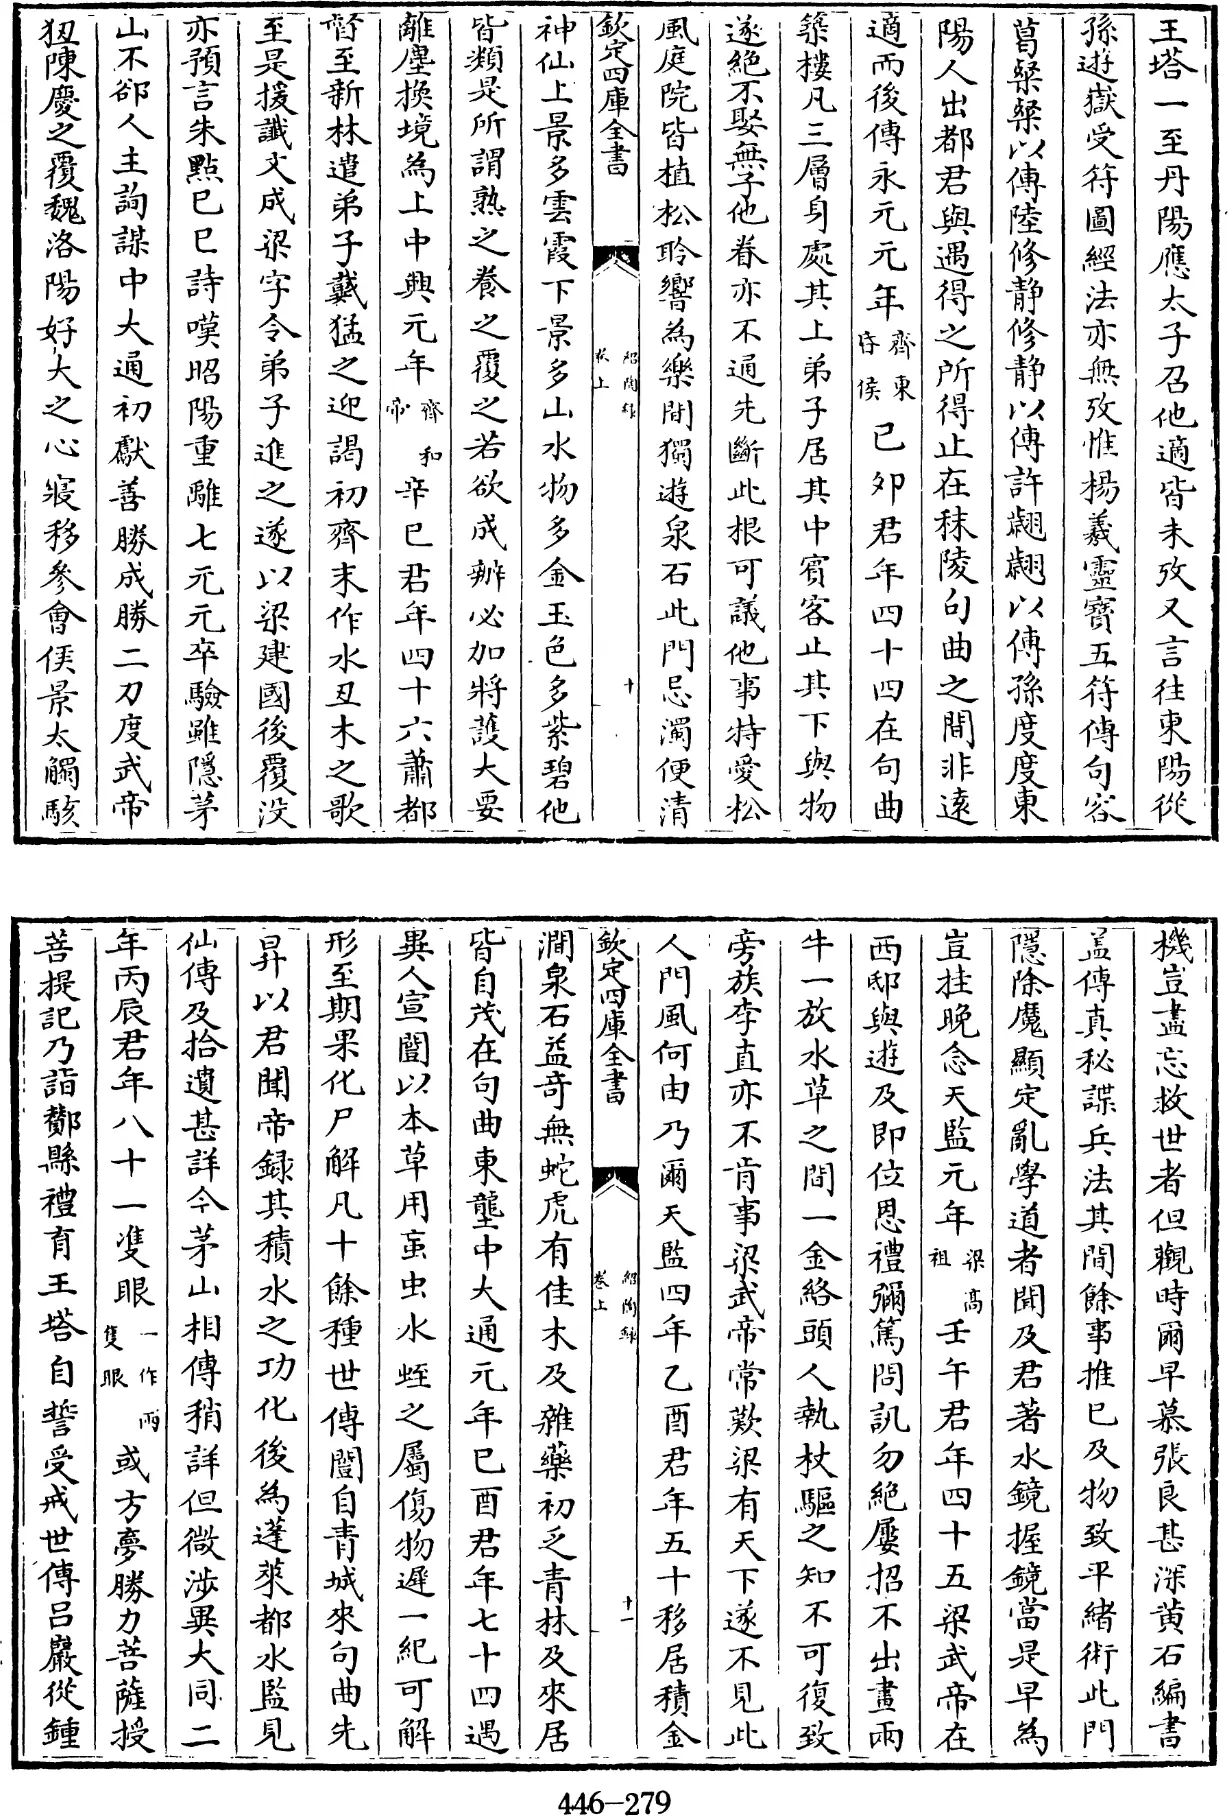 王塔一至丹陽應太子召他適皆未攷又言往東陽從
孫遊嶽受符圖經法亦無攷惟楊羲靈寳五符傳句容
葛粲粲以傳陸修靜修靜以傳許翽翽以傳孫度度東
陽人出都君與遇得之所得止在秣陵句曲之間非遠
適而後傳永元元年齊東昏侯已夘君年四十四在句曲
築樓凡三層身處其上弟子居其中賓客止其下與物
遂絶不娶無子他眷亦不通先斷此根可議他事特愛松
風庭院皆植松聆響為樂間獨遊泉石此門忌濁便清
欽定四庫全書
紹陶錄
卷上
十
神仙上景多雲霞下景多山水物多金玉色多紫碧他
皆類是所謂熟之養之覆之若欲成辦必加將護大要
離塵換境為上中興元年齊和帝辛巳君年四十六蕭都
督至新林遣弟子戴猛之迎謁初齊末作水丑木之歌
至是援讖文成梁字令弟子進之遂以梁建國後覆没
亦預言朱點已巳詩嘆昭陽重離七元元卒驗雖隱茅
山不郤人主詢謀中大通初獻善勝成勝二刀度武帝
狃陳慶之覆魏洛陽好大之心寢移參會侯景太觸駭
機豈盡忘救世者但觀時爾早慕張良甚深黄石編書
盖傳真秘諜兵法其間餘事推已及物致平緒術此門
隱除魔顯定亂學道者聞及君著水鏡握鏡當是早為
豈挂晚念天監元年梁髙祖壬午君年四十五梁武帝在
西邸與遊及即位恩禮彌篤問訊勿絶屢招不出畫兩
牛一放水草之間一金絡頭人執杖驅之知不可復致
旁族李直亦不肯事梁武帝常歎梁有天下遂不見此
人門風何由乃爾天監四年乙酉君年五十移居積金
欽定四庫全書
紹陶錄
卷上
十一
澗泉石益竒無蛇虎有佳木及雜藥初乏青林及來居
皆自茂在句曲東壟中大通元年已酉君年七十四遇
異人宣闓以本草用䖟虫水蛭之屬傷物遲一紀可解
形至期果化尸解凡十餘種世傳闓自青城來句曲先
昇以君聞帝録其積水之功化後為蓬萊都水監見
仙傳及拾遺甚詳今茅山相傳稍詳但微渉異大同二
年丙辰君年八十一隻眼一作兩隻眼或方夢勝力菩薩授
菩提記乃詣鄮縣禮育王塔自誓受戒世傳吕巖從鍾
446-279